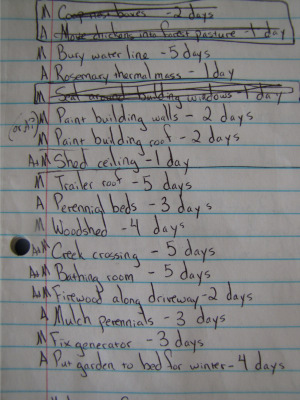 M Compost boxes - 2 days
A Move chickens into forest pasture - 1 day
M Bury water line - 5 days
A Rosemary thermal mass - 1 day
M Seal around building windows - 1 day
M Paint building walls - 2 days
M Paint building roof - 2 days
A+M Shed ceiling - 1 day
M Trailer roof - 5 days
A Perennial beds - 3 days
M Woodshed - 4 days
A+M Creek crossing - 5 days
A+M Bathing room - 5 days
A+M Firewood along driveway - 2 days
A Mulch perennials - 3 days
M Fix generator - 3 days
A Put garden to bed for winter - 4 days